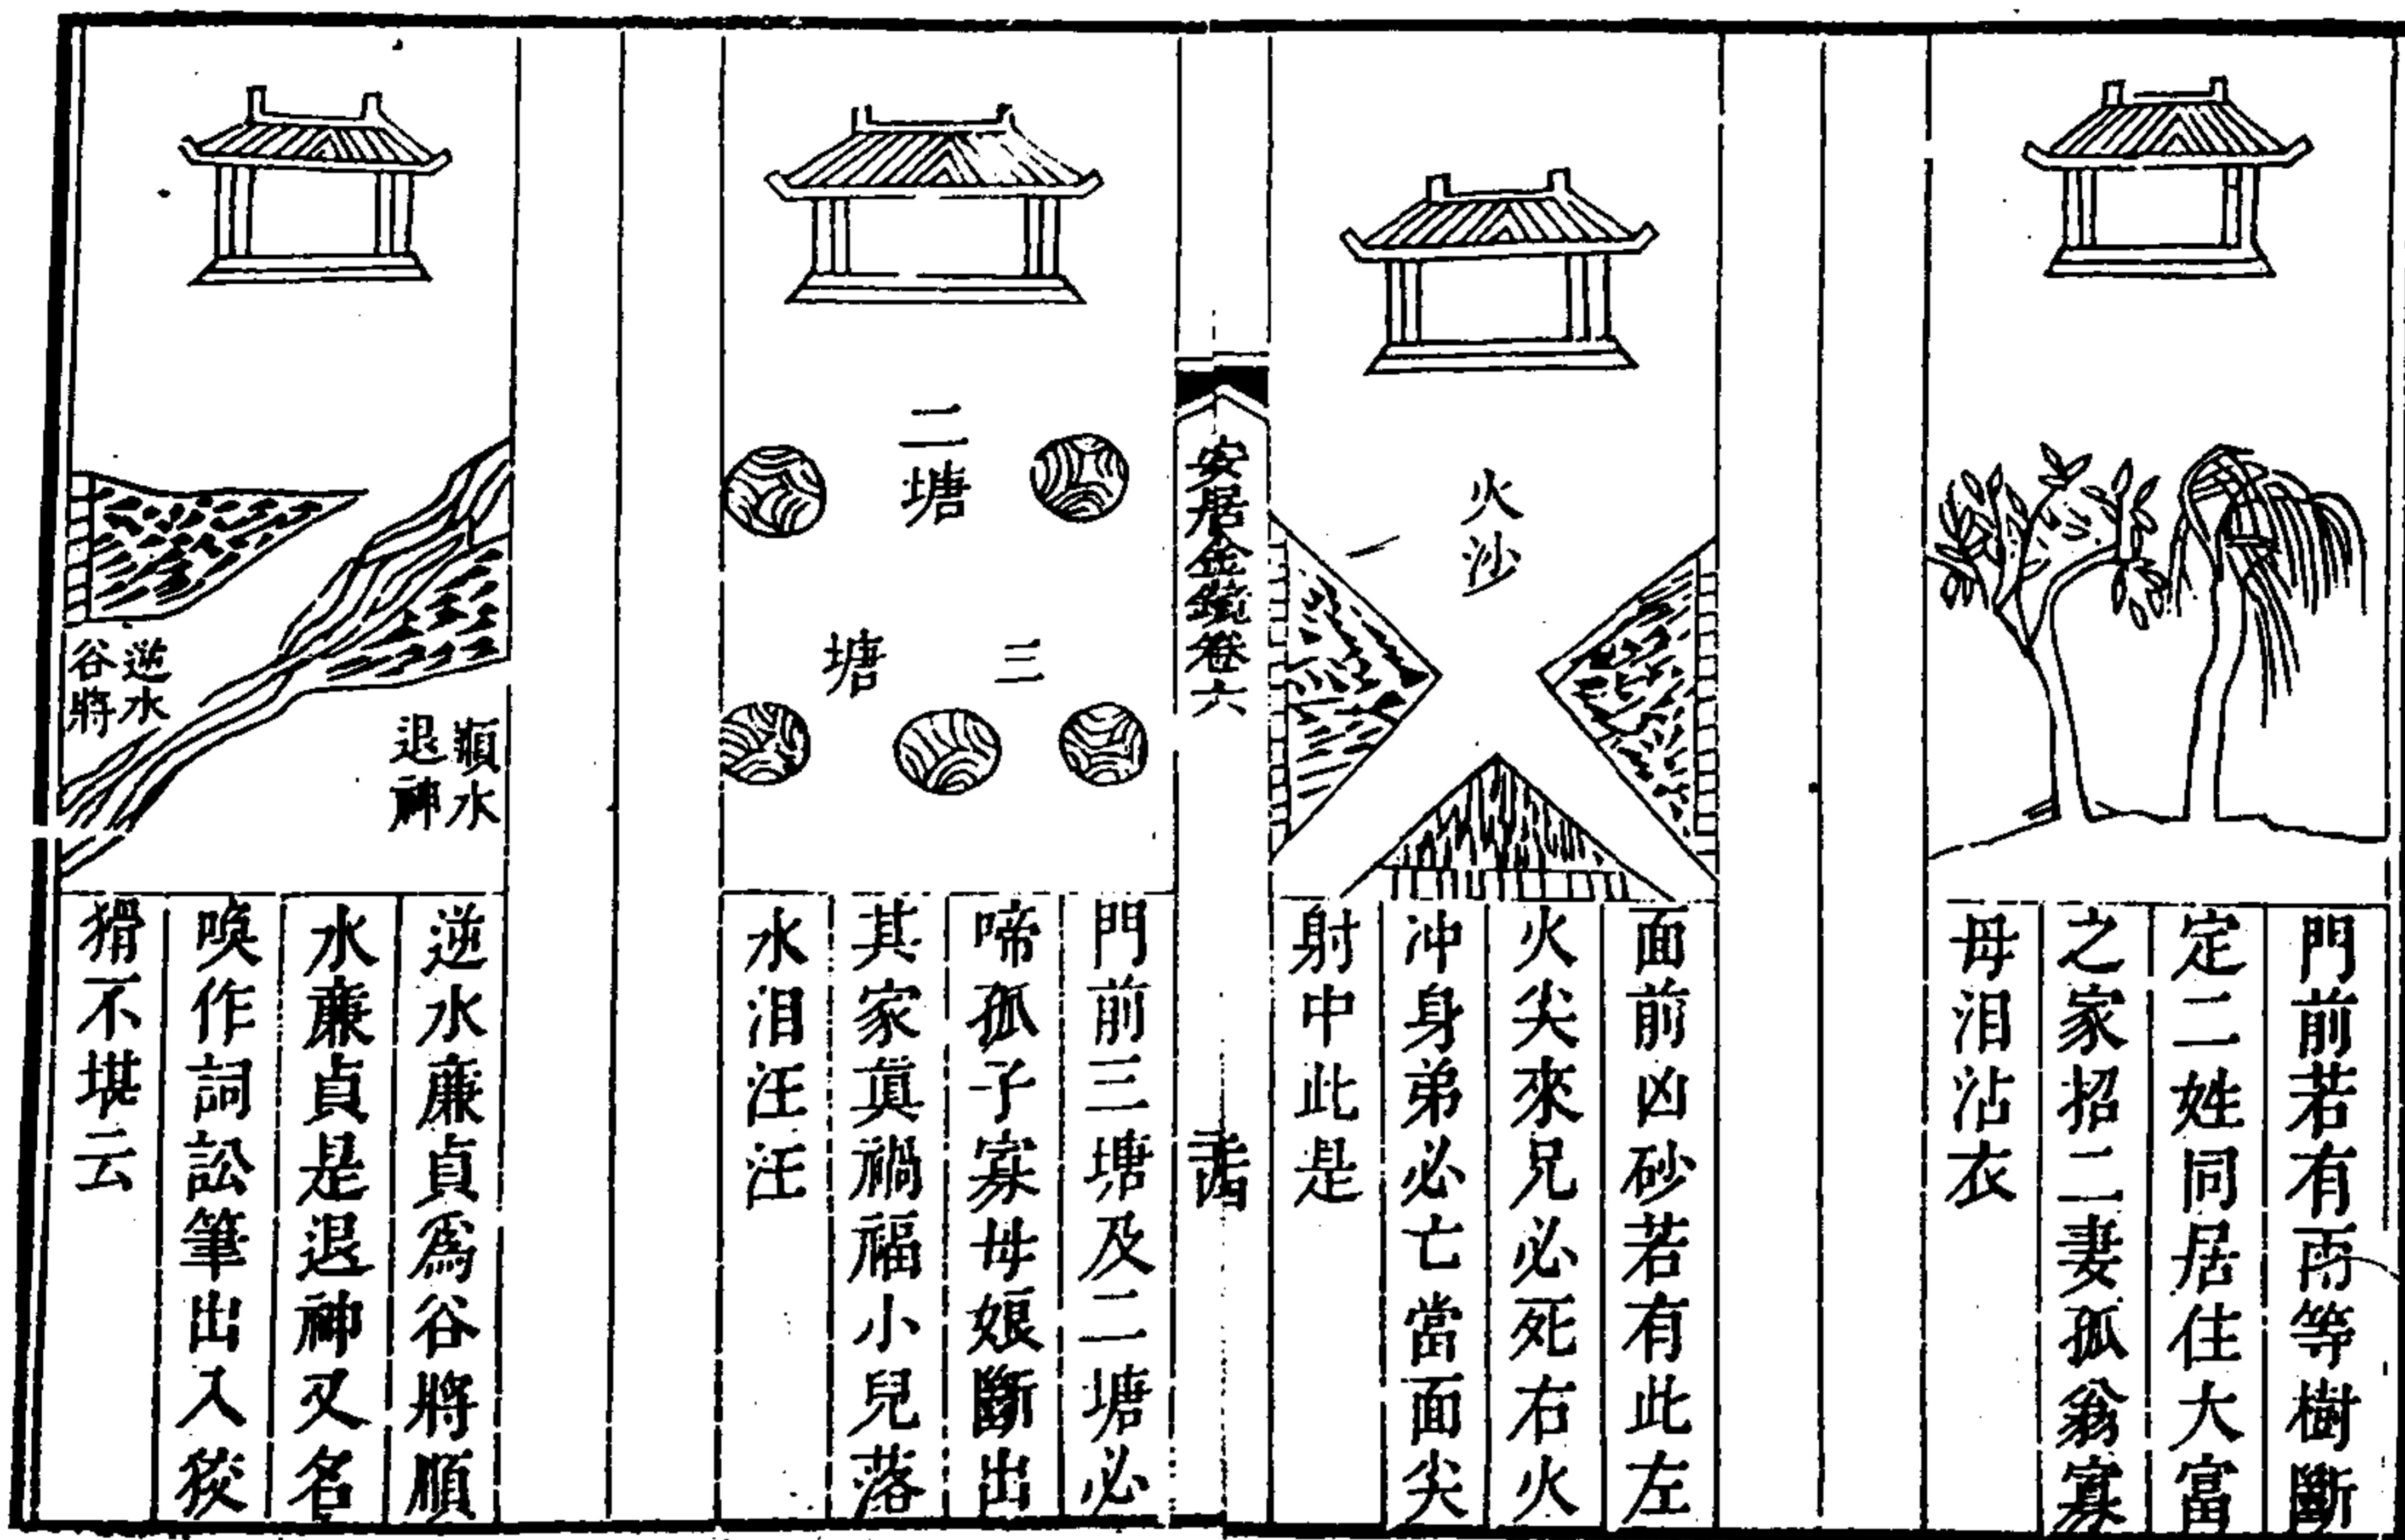 門前若有兩等樹斷
定二姓同居住大富
之家招二妻孤翁寡
母泪沾衣
火沙
面前凶砂若有此左
火尖來兄必死右火
冲身弟必亡當面尖
射中此是
安居金鏡卷六
二塘
三塘
門前三塘及二塘必
啼孤子寡母娘斷出
其家眞禍福小兒落
水泪汪汪
順水
退神
逆水
谷將
逆水廉貞爲谷將順
水廉貞是退神又名
喚作詞訟筆出入狡
猾不堪云